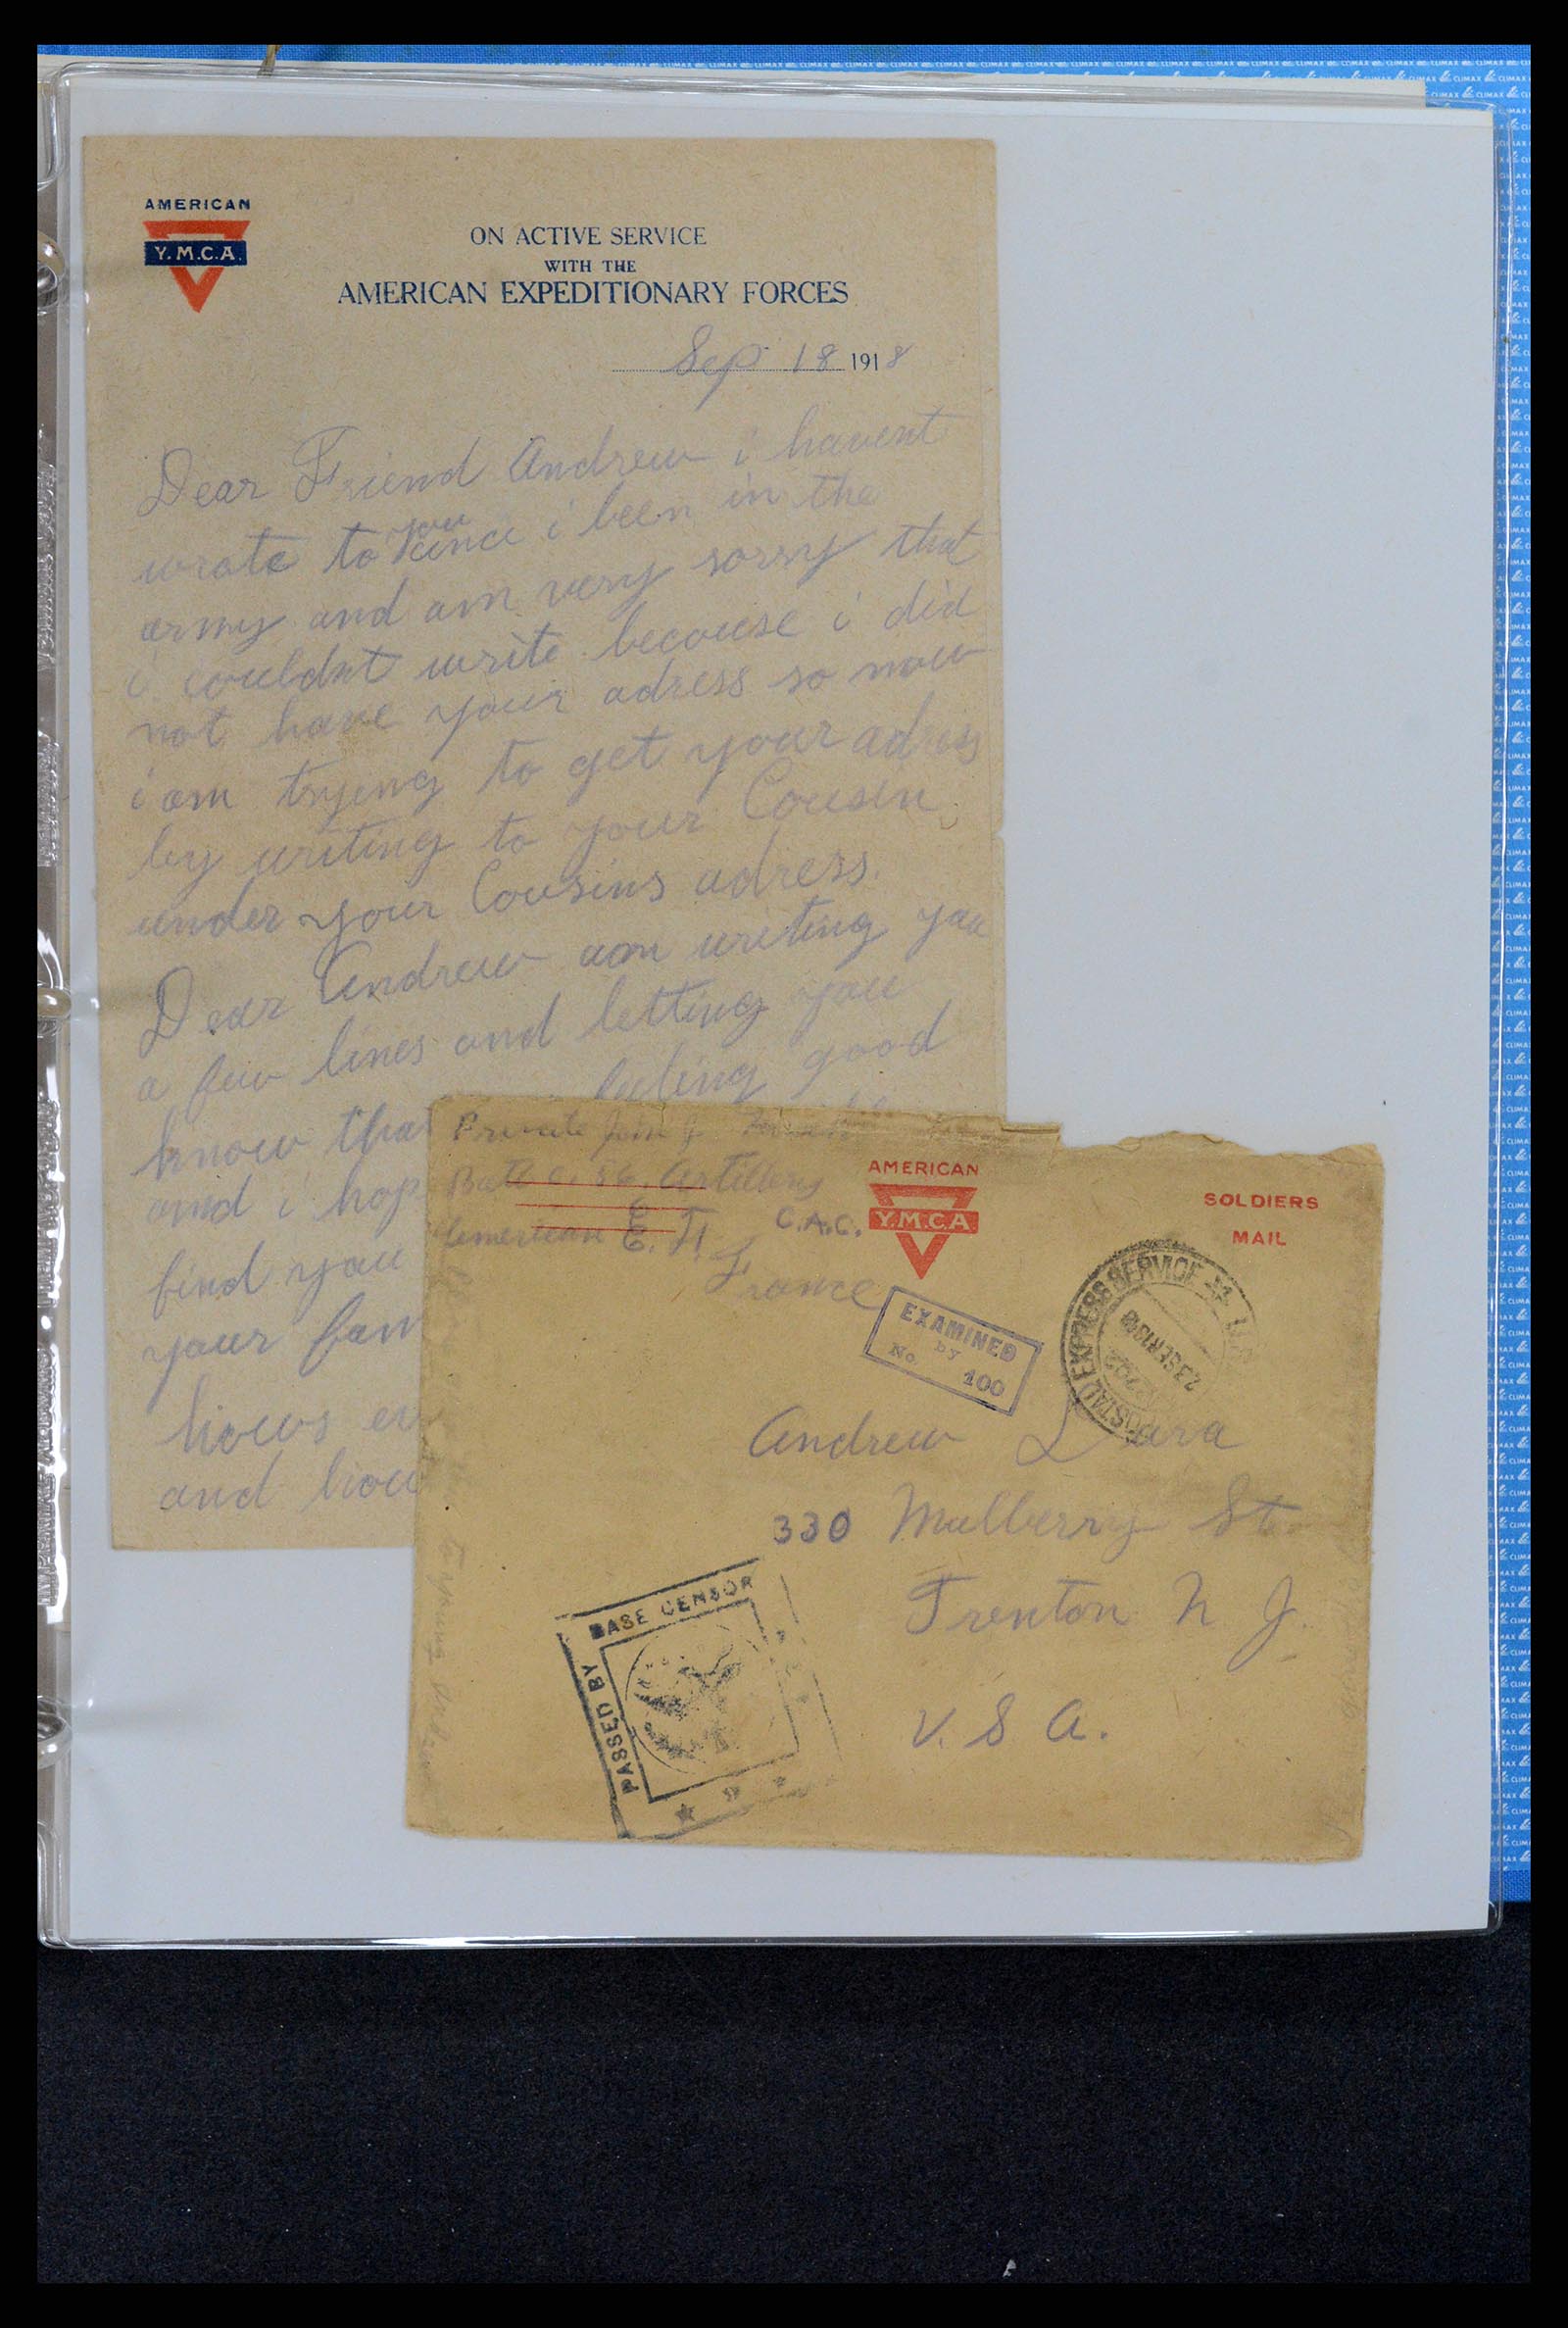 AMERICAN
Y.M.C.A.
ON ACTIVE SERVICE
WITH THE
AMERICAN EXPEDITIONARY FORCES
Sep 18 1918
Dear Friend Andrew i havent
wrote to you cince i been in the
army and am very sorry that
i couldnt write becouse i did
not have your adress so now
i am trying to get your adress
by writing to your Cousin
under your Cousins adress.
Dear Andrew am writing you
a few lines and letting you
know that feeling good
and i hop
find you
your fam
hows ev
and how
Private John J.
Batt. Artillery
American E. F. C.A.C.
France
AMERICAN
Y.M.C.A.
SOLDIERS
MAIL
EXAMINED
by
No. 100
POSTAL EXPRESS SERVICE
23 SEP 1918
702
Andrew
330 Mulberry St
Trenton N J.
U. S. A.
PASSED BY BASE CENSOR
CLIMAX